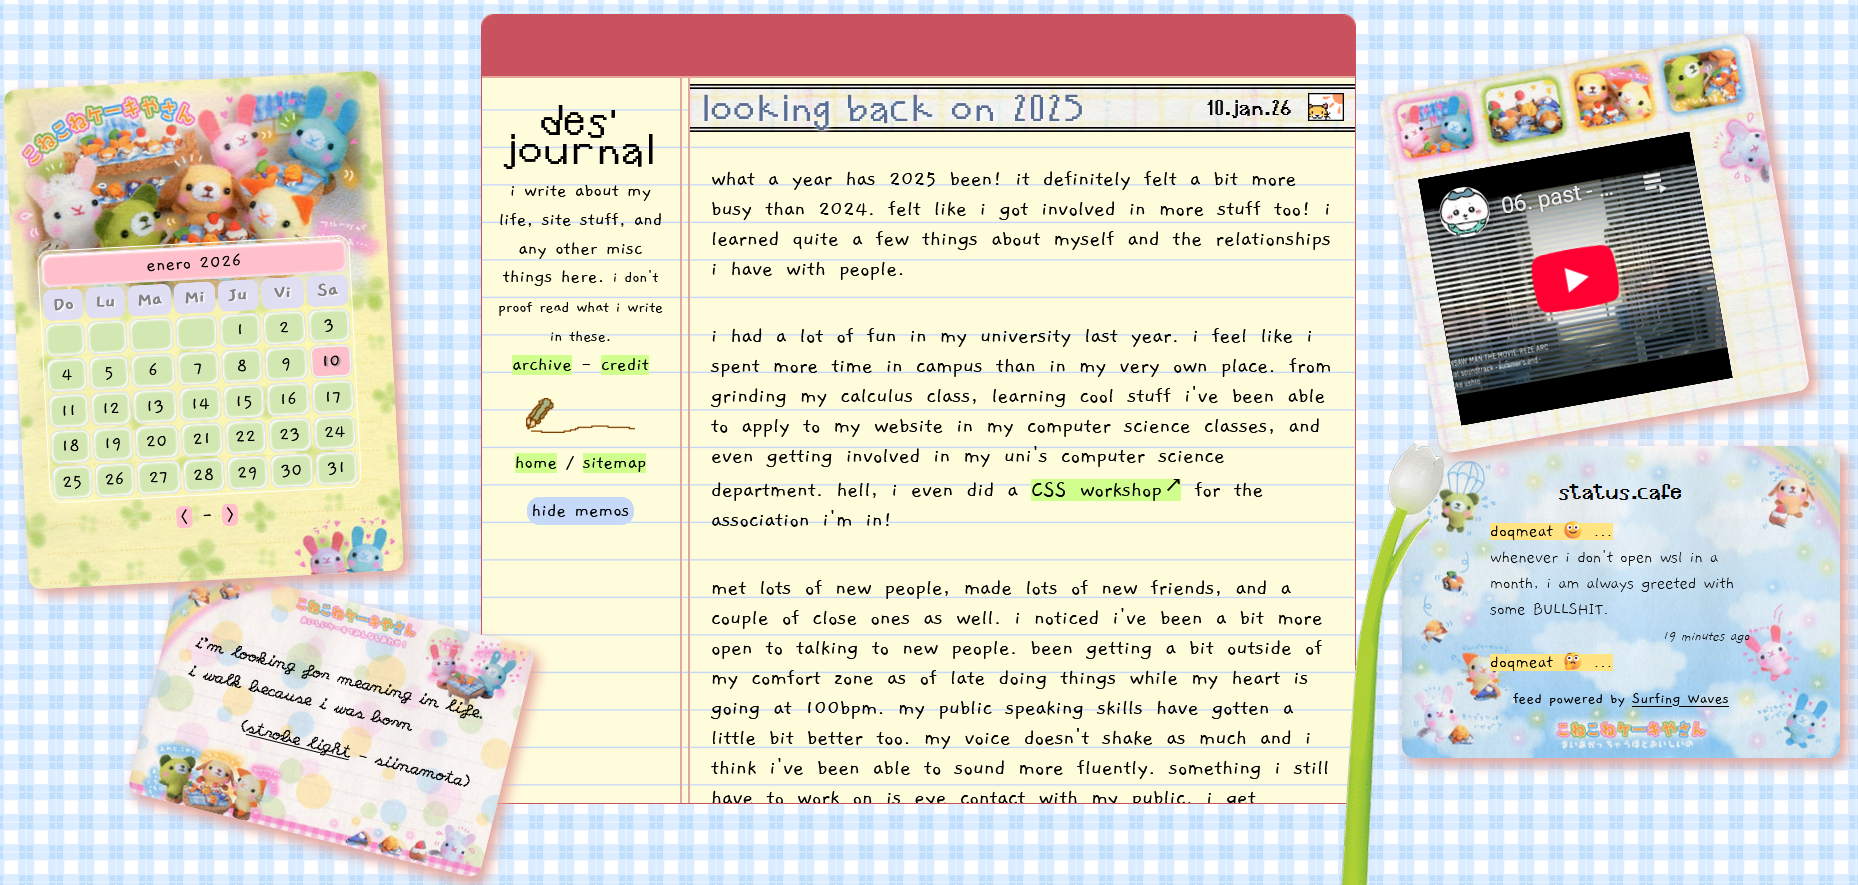 こねこねケーキやさん
enero 2026
Do Lu Ma Mi Ju Vi Sa
1 2 3
4 5 6 7 8 9 10
11 12 13 14 15 16 17
18 19 20 21 22 23 24
25 26 27 28 29 30 31
< - >
こねこねケーキやさん
i'm looking for meaning in life.
i walk because i was born
(strobe light - siinamota)
des'
journal
i write about my
life, site stuff, and
any other misc
things here. i don't
proof read what i write
in these.
archive - credit
home / sitemap
hide memos
looking back on 2025
10.jan.26
what a year has 2025 been! it definitely felt a bit more
busy than 2024. felt like i got involved in more stuff too! i
learned quite a few things about myself and the relationships
i have with people.
i had a lot of fun in my university last year. i feel like i
spent more time in campus than in my very own place. from
grinding my calculus class, learning cool stuff i've been able
to apply to my website in my computer science classes, and
even getting involved in my uni's computer science
department. hell, i even did a CSS workshop↗ for the
association i'm in!
met lots of new people, made lots of new friends, and a
couple of close ones as well. i noticed i've been a bit more
open to talking to new people. been getting a bit outside of
my comfort zone as of late doing things while my heart is
going at 100bpm. my public speaking skills have gotten a
little bit better too. my voice doesn't shake as much and i
think i've been able to sound more fluently. something i still
have to work on is eye contact with my public. i get
06. past - ...
status.cafe
doqmeat 🙂 ...
whenever i don't open wsl in a
month, i am always greeted with
some BULLSHIT.
19 minutes ago
doqmeat 😟 ...
feed powered by Surfing Waves
こねこねケーキやさん